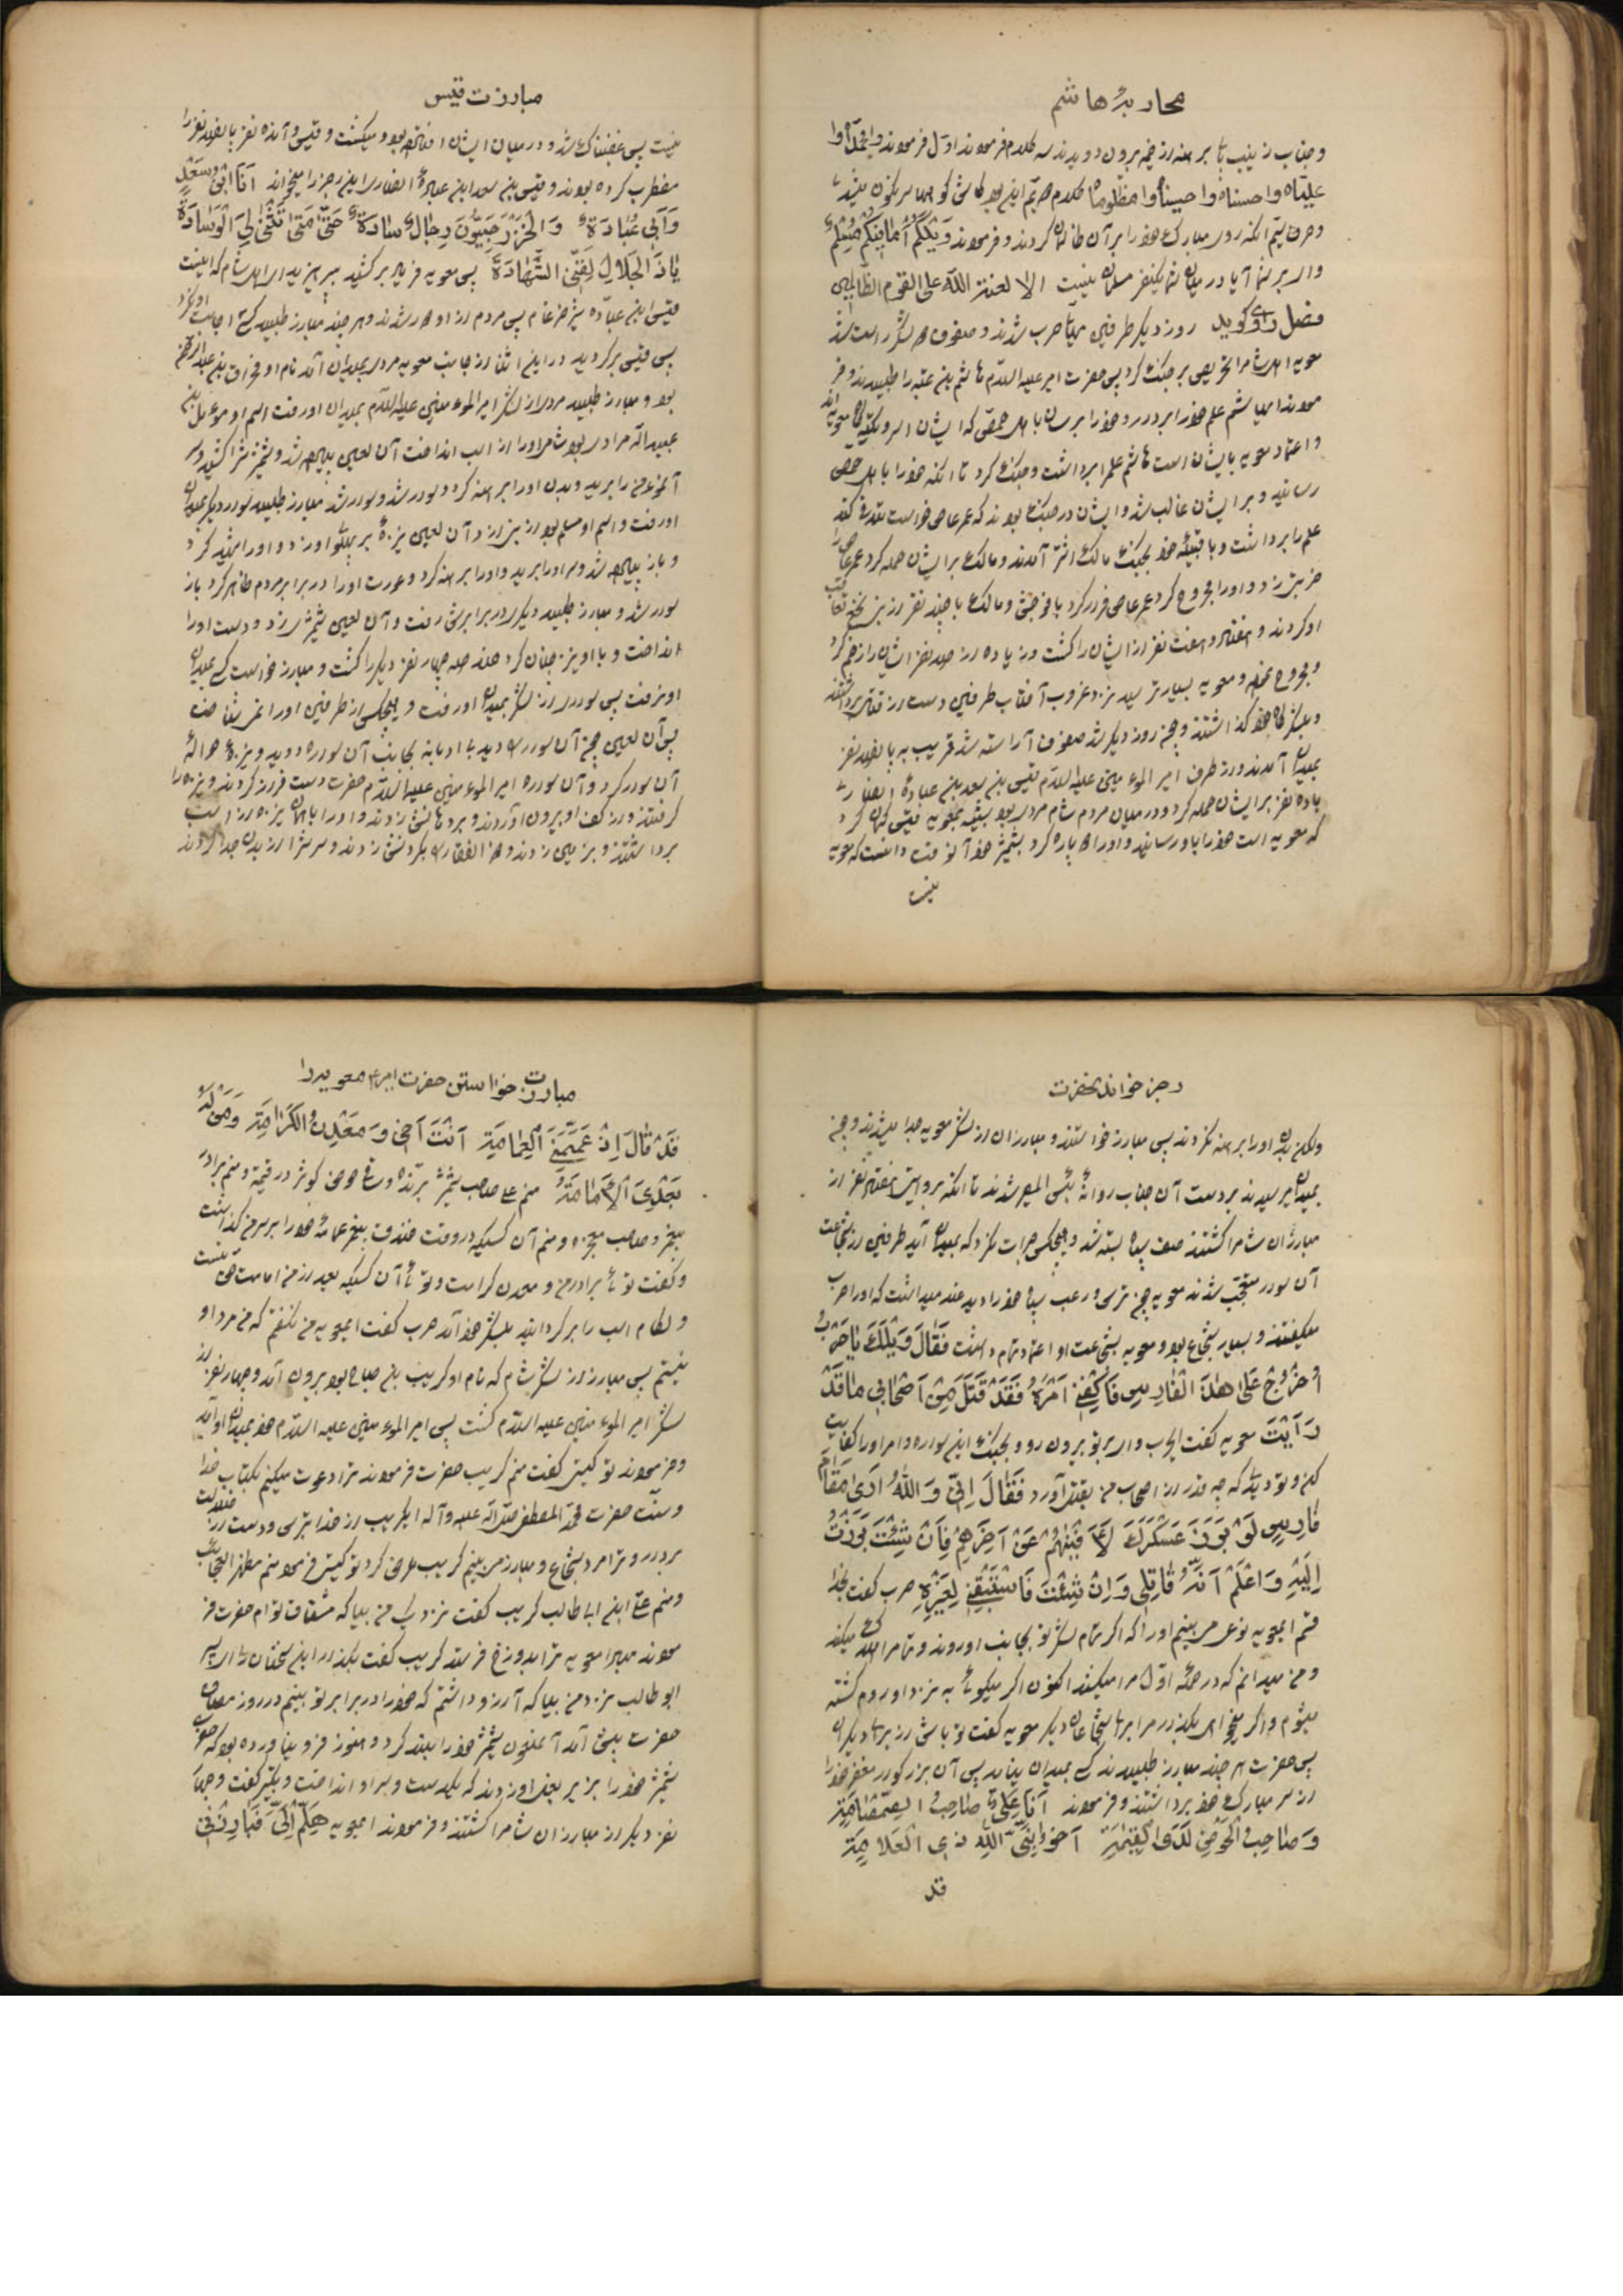 محاربهٔ هاشم
و جناب زینب با برهنه از خیمه بیرون دویدند سه کلام فرمودند اول فرمودند وا محمداه وا
علیاه وا حسناه وا حسیناه وا مظلوماه کلام دویم این بود کاش کوهها سرنگون میشد
و حرف سیم آنکه روی مبارک خود را بر آن ظالمان کردند و فرمودند وَیْلَکُمْ أَمَا فِیکُمْ مُسْلِمٌ
وای بر شما آیا در میان شما یکنفر مسلمان نیست الا لعنة الله علی القوم الظالمین
فصل راوی گوید روز دیگر طرفین مهیّای حرب شدند و صفوف هر دو لشکر راست شد
معویه اهل شام را تحریص بر جنگ کرد پس حضرت امیر علیه السلام هاشم بن عتبه را طلبیدند و فر
مودند ای هاشم علم خود را بردار و خود را برسان با اهل حمص که ایشان
و اعتماد معویه بایشان است هاشم علم را برداشت و جنگ کرد تا آنکه خود را باهل حمص
رسانید و بر ایشان غالب شد و ایشان در جنگ بودند که عمر عاص خواست
علم را برداشت و با بقیّهٔ خود بجنگ مالک اشتر آمدند و مالک بر ایشان حمله کرد عمر عاص را
ضربتی زد و او را مجروح کرد عمر عاص فرار کرد با فوجش و مالک با چند نفر از نخع تعاقب
او کردند و هفتاد و هفت نفر از ایشان را کشت و زیاده از صد نفر ایشان را زخم کرد
و مجروح نمود و معویه بسیار ترسید نزد غروب آفتاب طرفین دست از قتال برداشتند
و بلشکرگاه خود گذاشتند و چون روز دیگر شد صفوف آراسته شد قریب به پانصد نفر
بمیدان آمدند و از طرف امیر المؤمنین علیه السلام قیس بن سعد بن عبادهٔ انصاری
با ده نفر بر ایشان حمله کرد و در میان مردم شام مردی بود شبیه بمعویه قیس گمان کرد
که معویه است خود را باو رسانید و او را دو پاره کرد بشمشیر خود آنوقت دانست که معویه
نیست
مبارزت قیس
نیست پس غضبناک شد و در میان ایشان افتاده بود و میکشت و قیس و آن ده نفر پانصد نفر را
مضطرب کرده بودند و قیس بن سعد ابن عبادهٔ انصاری این رجز را میخواند اَنَا ابْنُ سَعْدٍ
وَاَبِی عُبَادَةٌ وَ الْخَزْرَجِیُّونَ رِجَالٌ سَادَةٌ حَتّٰی مَتٰی تُثْنٰی لِیَ الْوِسَادَةُ
یَا ذَا الْجَلَالِ لَقِّنِی الشَّهَادَةَ پس معویه فریاد برکشید بپرهیزید ای اهل شام که اینست
قیس ابن عباده شیر ضرغام پس مردم از او دور شدند و هر چند مبارز طلبید کسی اجابت او نکرد
پس قیس برگردید در این اثنا از جانب معویه مردی بمیدان آمد نام او مخراق بن عبدالرحمن
بود و مبارز طلبید مردی از لشکر امیر المؤمنین علیه السلام بمیدان او رفت اسم او مؤمل بن
عبیدالله مرادی بود شامی او را از اسب انداخت آن لعین پیاده شد و شمشیرش را کشید و سر
آن مؤمن را برید و بدن او را برهنه کرد و سوار شد و سوار شد مبارز طلبید سوار دیگر بمیدان
او رفت و اسم او مسلم بود از بنی ازد آن لعین نیزهٔ بر پهلوی او زد و او را شهید کرد
و باز پیاده شد و سر او را برید و او را برهنه کرد و عورت او را در برابر مردم ظاهر کرد باز
سوار شد و مبارز طلبید دیگری در برابرش رفت و آن لعین شمشیرش زد و دست او را
انداخت و با او نیز چنان کرد چند چهار نفر دیگر را کشت و مبارز خواست کسی بمیدان
او نرفت پس سواری از لشکر بمیدان او رفت و هیچکس از طرفین او را نمیشناخت
پس آن لعین چون آن سوار را دید با ادبانه بجانب آن سوار دوید و نیزهٔ حوالهٔ
آن سوار کرد و آن سوار امیر المؤمنین علیه السلام حضرت دست فراز کردند و نیزه را
گرفتند و از کف او بیرون آوردند و بر دهانش زدند و او را با همان نیزه از اسب
برداشتند و بزمین زدند و ذوالفقار را بگردنش زدند و سرش را از بدن جدا کردند
رجز خواندن حضرت
و لکن بدن او را برهنه نکردند پس مبارز خواستند و مبارزان از لشکر معویه جدا میشدند و چون
بمیدان میرسیدند بر دست آن جناب روانهٔ بئس المصیر شدند تا آنکه بروایتی هفتاد نفر از
مبارزان شام را کشتند صف سپاه بسته شد و هیچکس جرات نکرد که بمیدان آید طرفین از شجاعت
آن سوار متعجب شدند معویه چون ترس و رعب سپاه خود را دید عبد میداشت که او را حرب
میگفتند و بسیار شجاع بود و معویه بشجاعت او اعتماد تمام داشت فَقَالَ وَیْلَکَ یَا حَرْبُ
اُخْرُجْ عَلَی هٰذَا الْفَارِسِ فَاکْفِنِی اَمْرَهُ فَقَدْ قَتَلَ مِنْ اَصْحَابِی مَا قَدْ
رَأَیْتَ معویه گفت ای حرب وای بر تو بیرون رو و بجنگ این سواره و امر او را کفایت
کن و تو دیدی که چه قدر از اصحاب من بقتل آورد فَقَالَ اِنِّی وَ اللهُ اَرٰی مَقَامَ
فَارِسٍ لَوْ بَرَزَ عَسْکَرُکَ لَاَفْنٰیهُمْ عَنْ آخِرِهِمْ فَاِنْ شِئْتَ بَرَزْتُ
اِلَیْهِ وَ اعْلَمْ اَنَّهُ قَاتِلِی وَ اِنْ شِئْتَ فَاسْتَبْقِنِی لِغَیْرِهِ حرب گفت بخدا
قسم ای معویه نوعی میبینم او را که اگر تمام لشکر تو بجانب او روند و تمام را هلاک میکند
و من میدانم که در حملهٔ اول مرا میکشد اکنون اگر میگوئی به نزد او روم کشته
میشوم و اگر میخواهی بگذار مرا برای شجاعان دیگر معویه گفت تو باش از برای دیگران
پس حضرت هر چند مبارز طلبیدند کسی بمیدان نیامد پس آن بزرگوار مغفر خود را
از سر مبارک خود برداشتند و فرمودند اَنَا عَلِیٌّ صَاحِبُ الصَّمْصَامَةِ
وَ صَاحِبُ الْحَوْضِ لَدَی الْقِیٰمَةِ اَخُو نَبِیِّ اللهِ ذِی الْعَلَامَةِ
قد
مبارزت خواستن حضرت امیر ع معویه را
قَدْ قَالَ اِذْ عَمَّمَنِی الْعِمَامَةَ اَنْتَ اَخِی وَ مَعْدِنُ الْکَرَامَةِ وَ مَنْ لَهُ
بَعْدِیَ الْاِمَامَةُ منم علی صاحب شمشیر برنده و ساقی حوض کوثر در قیمة و منم برادر
پیغمبر و صاحب معجزه و منم آن کسیکه در وقت خندق پیغمبر عمامهٔ خود را بر سر من گذاشت
و گفت توئی برادر من و معدن کرامت و توئی آن کسیکه بعد از من امامت حق تست
و لگام اسب را برگردانید بلشکر خود آمد حرب گفت ای معویه من نگفتم که من مرد او
نیستم پس مبارزی از لشکر شام که نام او کریب بن صباح بود بیرون آمد و چهار نفر از
لشکر امیر المؤمنین علیه السلام کشت پس امیر المؤمنین علیه السلام خود بمیدان او آمد
و فرمودند تو کیستی گفت منم کریب حضرت فرمودند ترا دعوت میکنم بکتاب خدا
و سنّت حضرت محمّد المصطفی صلی الله علیه و آله ای کریب از خدا بترس و دست از ضلالت
بردار و ترا مرد شجاع و مبارز میبینم کریب عرض کرد تو کیستی فرمود منم مظهر العجائب
و منم علی ابن ابی طالب کریب گفت نزدیک من بیا که مشتاق توام حضرت فر
مودند مبادا معویه ترا بدوزخ فرستد کریب گفت بگذار این سخنان را ای پسر
ابو طالب نزد من بیا که آرزو داشتم که خود را در برابر تو بینم در روز مصاف
حضرت پیش آمد آنملعون شمشیر خود را بلند کرد و هنوز فرو نیاورده بود که حضرت
شمشیر خود را بزیر بغل او زدند که یکدست و سر او انداخت و تکبیر گفت و چهار
نفر دیگر از مبارزان شام را کشتند و فرمودند ای معویه هَلُمَّ اِلَیَّ فَبَارِزْنِی